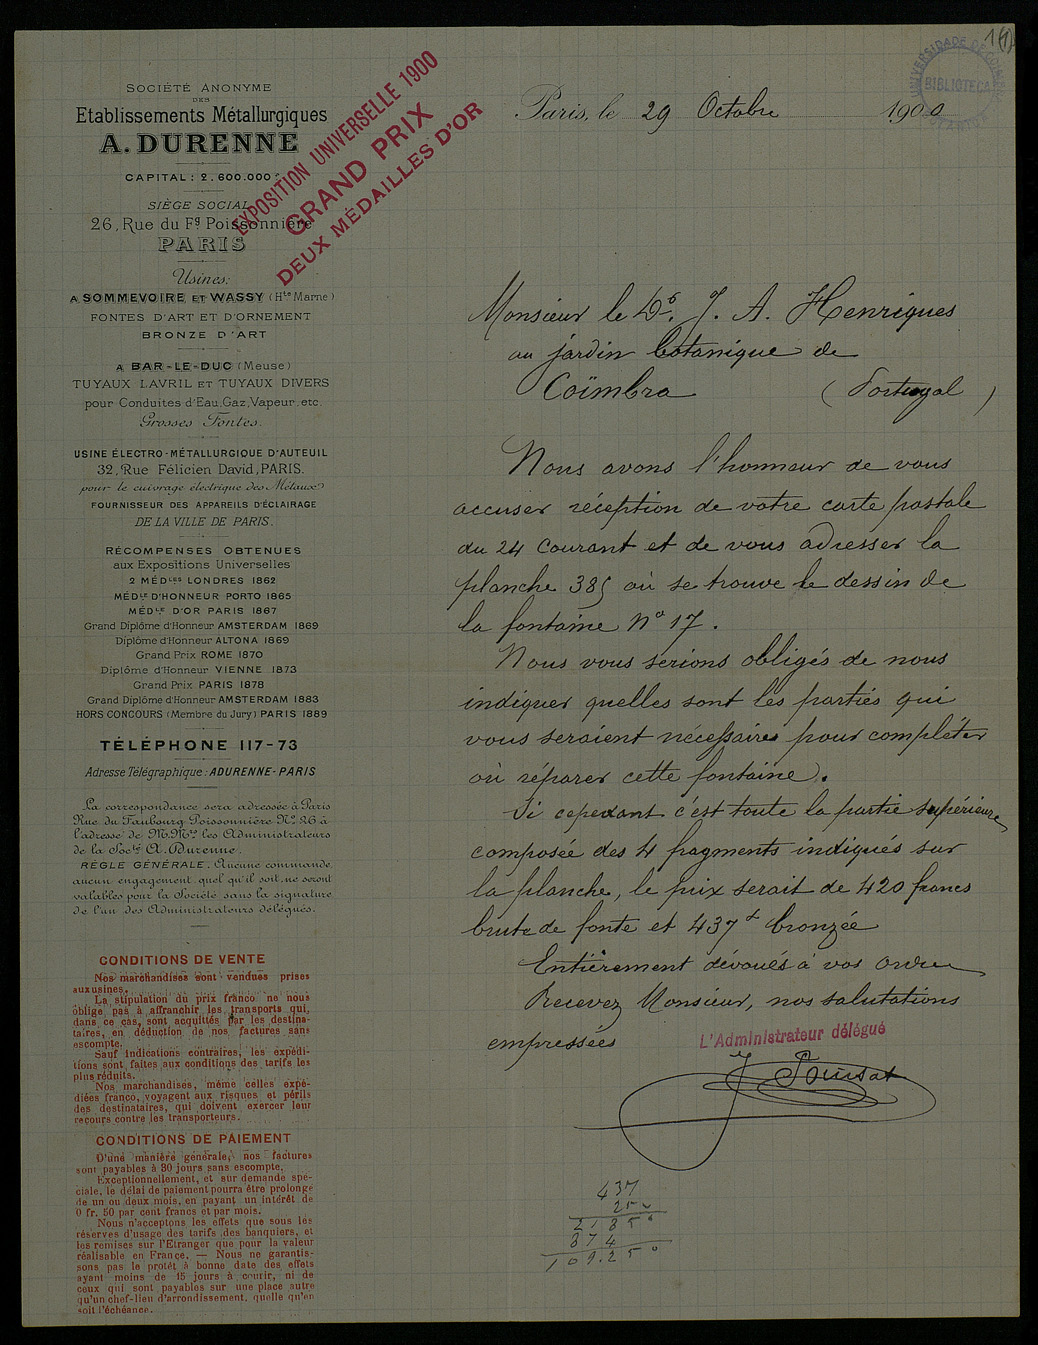 SOCIÉTÉ ANONYME
DES
Etablissements Métallurgiques
A. DURENNE
CAPITAL : 2.600.000
SIÈGE SOCIAL
26, Rue du Fg Poissonnière
PARIS
Usines:
A SOMMEVOIRE ET WASSY (Hte Marne)
FONTES D'ART ET D'ORNEMENT
BRONZE D'ART
A BAR-LE-DUC (Meuse)
TUYAUX LAVRIL ET TUYAUX DIVERS
pour Conduites d'Eau, Gaz, Vapeur, etc.
Grosses Fontes.
USINE ÉLECTRO-MÉTALLURGIQUE D'AUTEUIL
32, Rue Félicien David, PARIS.
pour le cuivrage électrique des Métaux
FOURNISSEUR DES APPAREILS D'ÉCLAIRAGE
DE LA VILLE DE PARIS.
RÉCOMPENSES OBTENUES
aux Expositions Universelles
2 MÉDles LONDRES 1862
MÉDle D'HONNEUR PORTO 1865
MÉDle D'OR PARIS 1867
Grand Diplôme d'Honneur AMSTERDAM 1869
Diplôme d'Honneur ALTONA 1869
Grand Prix ROME 1870
Diplôme d'Honneur VIENNE 1873
Grand Prix PARIS 1878
Grand Diplôme d'Honneur AMSTERDAM 1883
HORS CONCOURS (Membre du Jury) PARIS 1889
TÉLÉPHONE 117-73
Adresse Télégraphique: ADURENNE-PARIS
La correspondance sera adressée à Paris
Rue du Faubourg Poissonnière No 26 à
l'adresse de M.Mrs les Administrateurs
de la Socté A. Durenne.
RÈGLE GÉNÉRALE. Aucune commande,
aucun engagement quel qu'il soit, ne seront
valables pour la Société sans la signature
de l'un des Administrateurs délégués.
CONDITIONS DE VENTE
Nos marchandises sont vendues prises
aux usines.
La stipulation du prix franco ne nous
oblige pas à affranchir les transports qui,
dans ce cas, sont acquittés par les destina-
taires, en déduction de nos factures sans
escompte.
Sauf indications contraires, les expédi-
tions sont faites aux conditions des tarifs les
plus réduits.
Nos marchandises, même celles expé-
diées franco, voyagent aux risques et périls
des destinataires, qui doivent exercer leur
recours contre les transporteurs.
CONDITIONS DE PAIEMENT
D'une manière générale, nos factures
sont payables à 30 jours sans escompte.
Exceptionnellement, et sur demande spé-
ciale, le délai de paiement pourra être prolongé
de un ou deux mois, en payant un intérêt de
0 fr. 50 par cent francs et par mois.
Nous n'acceptons les effets que sous les
réserves d'usage des tarifs des banquiers, et
les remises sur l'Etranger que pour la valeur
réalisable en France. — Nous ne garantis-
sons pas le protêt à bonne date des effets
ayant moins de 15 jours à courir, ni de
ceux qui sont payables sur une place autre
qu'un chef-lieu d'arrondissement, quelle qu'en
soit l'échéance.
EXPOSITION UNIVERSELLE 1900
GRAND PRIX
DEUX MÉDAILLES D'OR
1(1)
UNIVERSIDADE DE COIMBRA
BIBLIOTECA
BOTANICA
Paris, le 29 Octobre 1900
Monsieur le Dr. J. A. Henriques
au jardin botanique de
Coïmbra (Portugal)
Nous avons l'honneur de vous
accuser réception de votre carte postale
du 24 courant et de vous adresser la
planche 385 où se trouve le dessin de
la fontaine No 17.
Nous vous serions obligés de nous
indiquer quelles sont les parties qui
vous seraient nécessaires pour compléter
où réparer cette fontaine.
Si cependant c'est toute la partie supérieure
composée des 4 fragments indiqués sur
la planche, le prix serait de 420 francs
brute de fonte et 437f bronzée
Entièrement dévoués à vos ordres
Recevez Monsieur, nos salutations
empressées
L'Administrateur délégué
437
250
2185
874
109.250